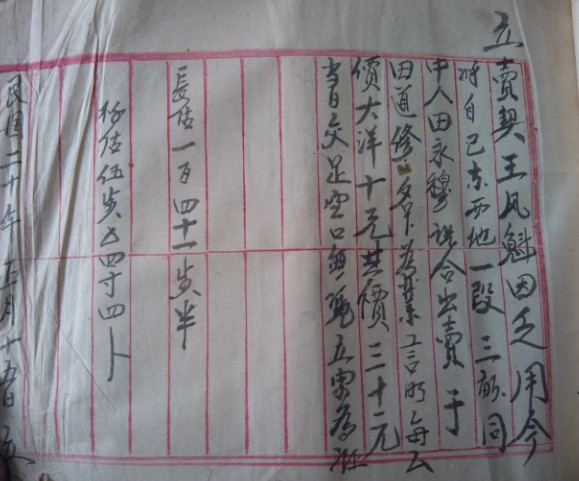 立賣契王凤魁因乏用今
将自己东西地一段三畝同
中人田永穆説合出賣于
田道修名下為業言明每亩
價大洋十元共價三十元
当日交足空口無凭立字為证
長估一百四十一步半
杨估伍步五四寸四卜
民国二十年五月十五日立